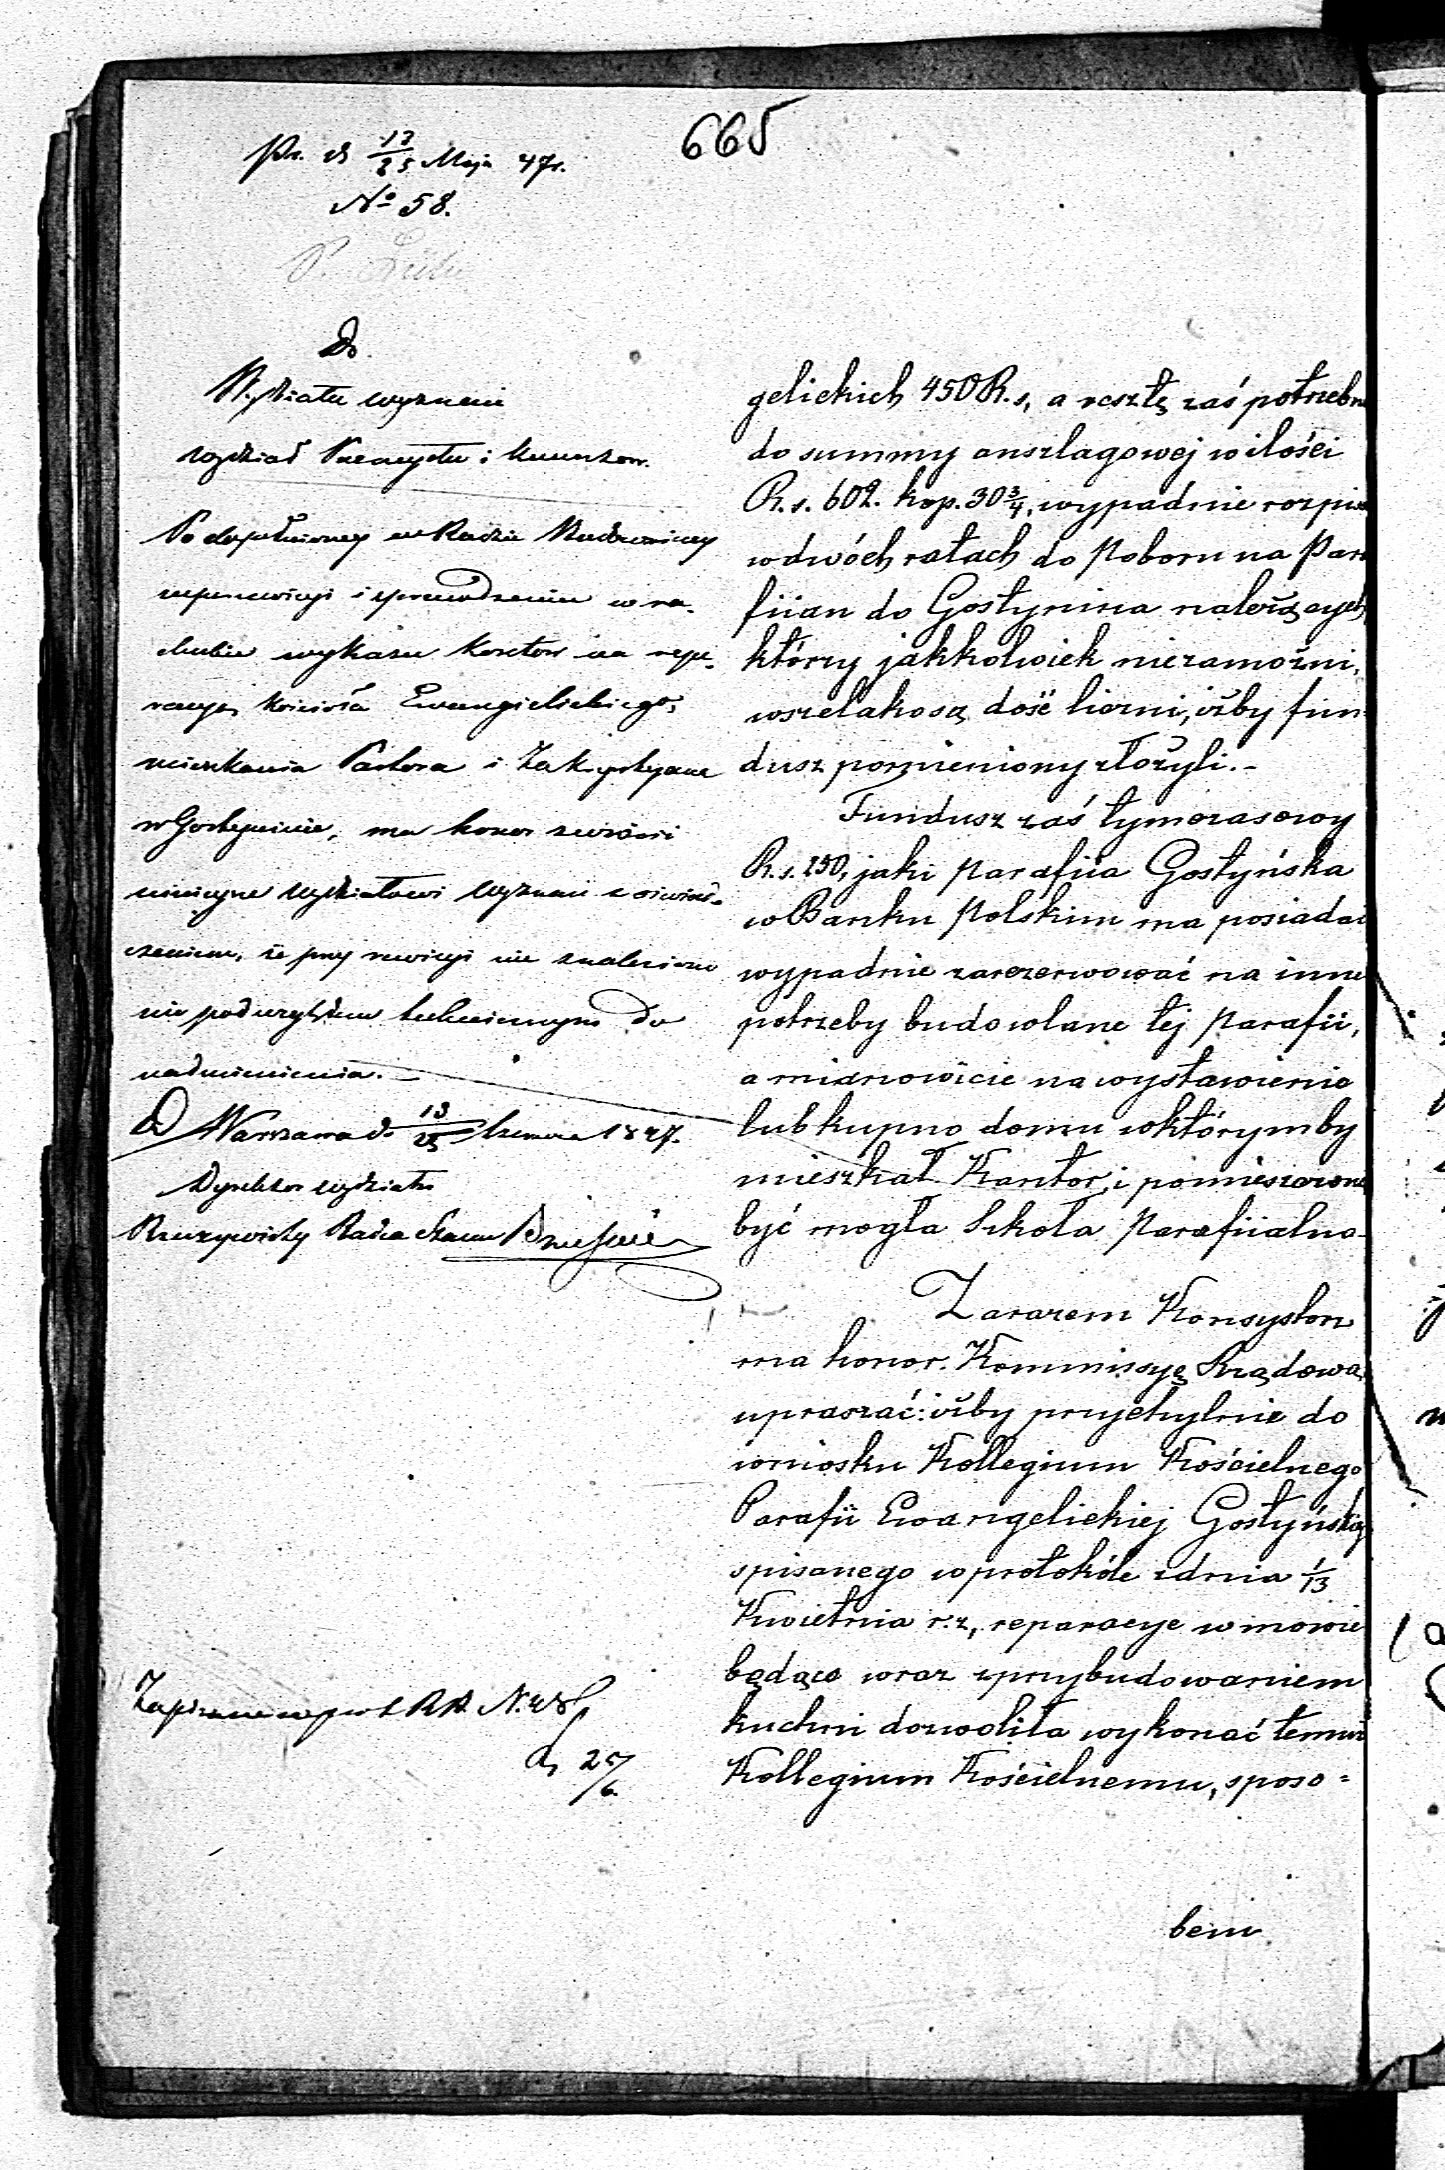 665
Pr. d 13/25 Maja 47 r.
No 58.
Do
Wydziału wyznań
wydział Przemysłu i Kunsztów.
Po dopełnioney w Radzie Budowniczey
superrewizyi i sprawdzeniu w ra-
chubie wykazu kosztów na repe-
racyę Kościoła Ewangielickiego,
mieszkania Pastora i Zakrystyana
w Gostyninie, ma honor zwrócić
ninieysze Wydziałowi Wyznań z oświad-
czeniem, że przy rewizyi nie znaleziono
nic pod względem technicznym do
nadmienienia.—
D Warszawa d. 13/25 Czerwca 1847.
Dyrektor wydziału
Rzeczywisty Radca Stanu
Zapisano w prot RB. N. 28
d 25/6.
gelickich 450 R. s, a resztę zaś potrzebn
do summy anszlagowej w ilości
R. s. 602. kop. 30 3/4, wypadnie rozpi
w dwóch ratach do poboru na Para
fiian do Gostynina należących,
którzy jakkolwiek niezamożni,
wszelako są dość liczni, iżby fun-
dusz pomieniony złożyli.—
Fundusz zaś tymczasowy
R. s. 150, jaki parafiia Gostyńska
w Banku Polskim ma posiadać
wypadnie zarezerwować na inne
potrzeby budowlane tej parafii,
a mianowicie na wystawienie
lub kupno domu w którymby
mieszkał Kantor, i pomieszczoną
być mogła Szkoła parafiialna.
Zarazem Konsystorz
ma honor. Kommissyę Rządową
upraszać: iżby przychylnie do
wniosku Kollegium Kościelnego
Parafii Ewangelickiej Gostyńskiej
spisanego w protokóle z dnia 1/13
Kwietnia r. z, reparacye w mowie
będące wraz z przybudowaniem
kuchni dozwoliła wykonać temuż
Kollegium Kościelnemu, sposo=
bem